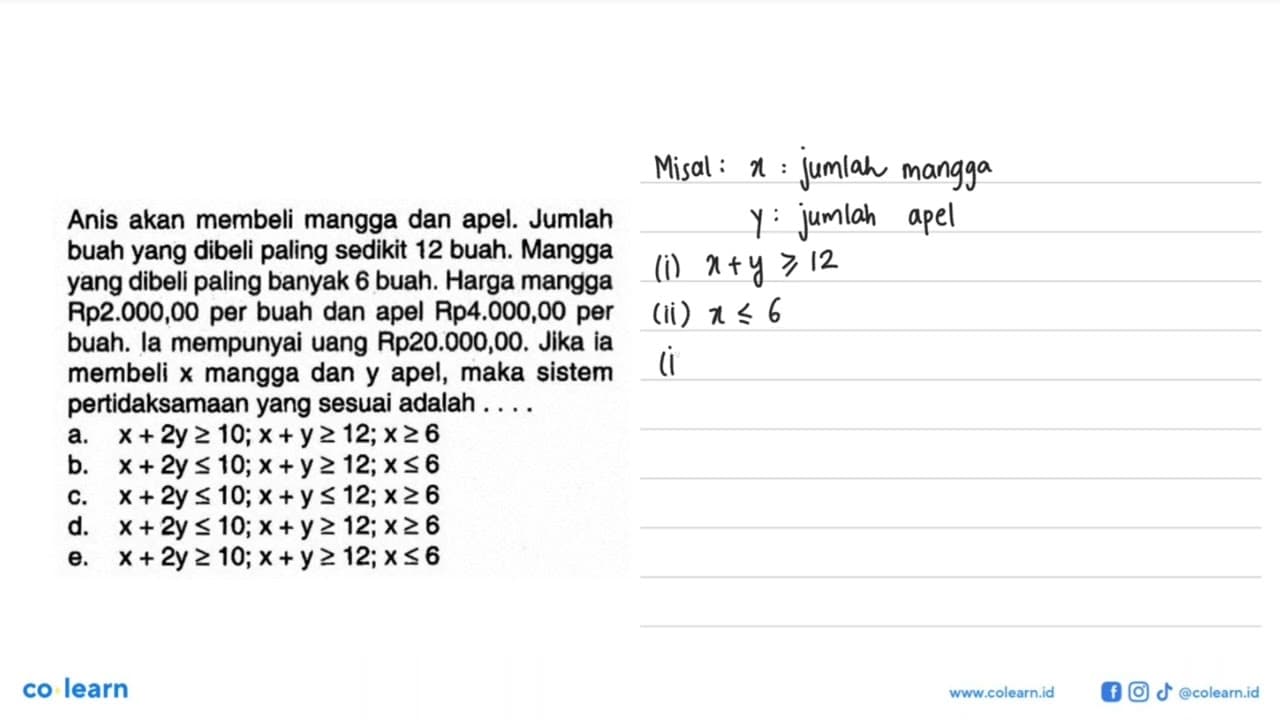 Anis akan membeli mangga dan apel. Jumlah
buah yang dibeli paling sedikit 12 buah. Mangga
yang dibeli paling banyak 6 buah. Harga mangga
Rp2.000,00 per buah dan apel Rp4.000,00 per
buah. Ia mempunyai uang Rp20.000,00. Jika ia
membeli x mangga dan y apel, maka sistem
pertidaksamaan yang sesuai adalah . . . .
a. x + 2y ≥ 10; x + y ≥ 12; x ≥ 6
b. x + 2y ≤ 10; x + y ≥ 12; x ≤ 6
c. x + 2y ≤ 10; x + y ≤ 12; x ≥ 6
d. x + 2y ≤ 10; x + y ≥ 12; x ≥ 6
e. x + 2y ≥ 10; x + y ≥ 12; x ≤ 6
Misal : x : jumlah mangga
y : jumlah apel
(i) x + y ≥ 12
(ii) x ≤ 6
(i
co learn
www.colearn.id
@colearn.id